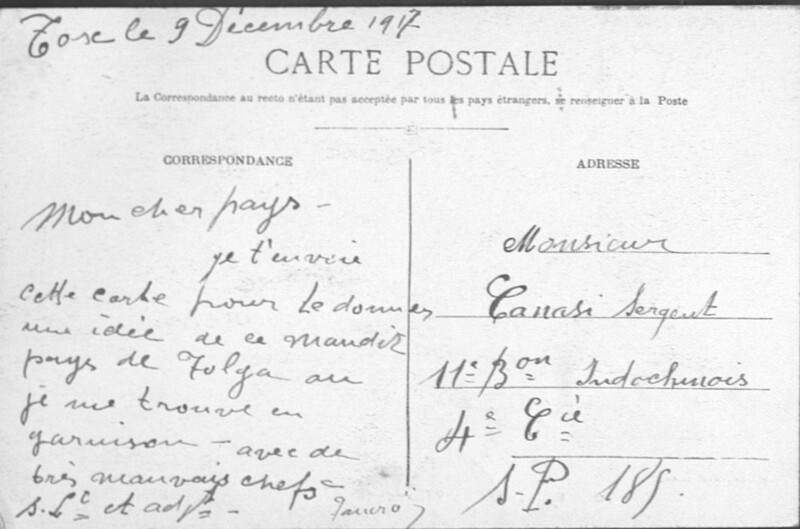 Tose le 9 Décembre 1917
CARTE POSTALE
La Correspondance au recto n'étant pas acceptée par tous les pays étrangers, se renseigner à la Poste
CORRESPONDANCE
Mon cher pays -
je t'envoie
cette carte pour te donner
une idée de ce maudit
pays de Tolga ou
je me trouve en
garnison - avec de
très mauvais chefs -
s. Lt et adjt -
ADRESSE
Monsieur
Canasi Sergent
11e Bon Indochinois
4e Cie
S.P. 185.